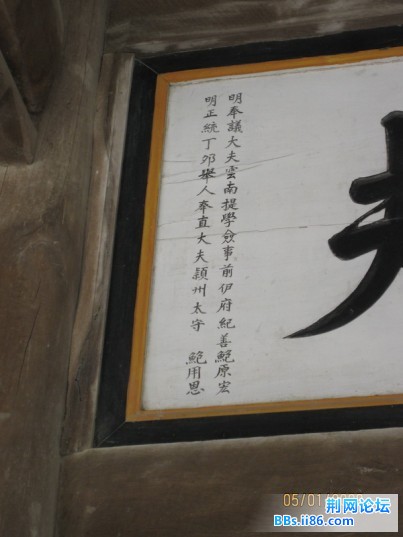 明奉議大夫雲南提學僉事前伊府紀善鮑原宏
明正統丁卯舉人奉直大夫頴州太守 鮑用思
05/01
荆网论坛
BBs.ii86.com